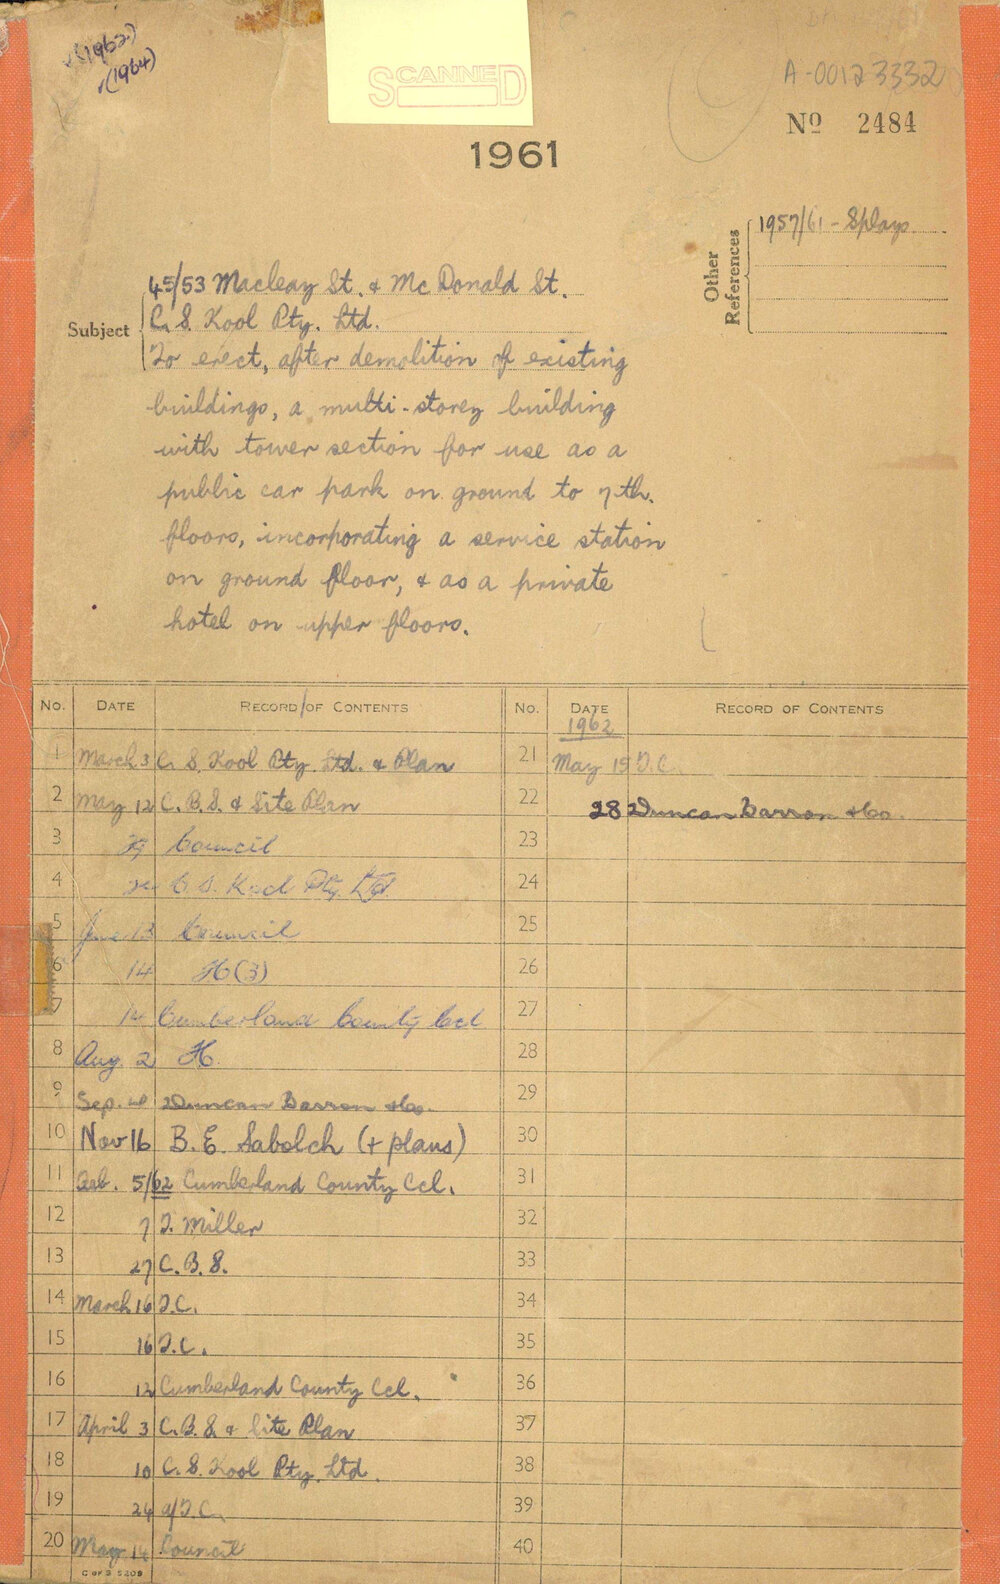 (1962)
(1964)
SCANNED
A-00123332
No 2484
1961
Other References
1957/61 - Splays
Subject
45/53 Macleay St. & McDonald St.
C. S. Kool Pty. Ltd.
To erect, after demolition of existing
buildings, a multi-storey building
with tower section for use as a
public car park on ground to 7th.
floors, incorporating a service station
on ground floor, & as a private
hotel on upper floors.
No. DATE RECORD OF CONTENTS
1 March 3 C. S. Kool Pty. Ltd. & Plan
2 May 12 C.B.S. & Site Plan
3 Council
4 C. S. Kool Pty. Ltd.
5 June 13 Council
6 14 H(3)
7 14 Cumberland County Ccl
8 Aug. 2 H
9 Sep. Duncan Barron & Co.
10 Nov 16 B. E. Sabolch (+ plans)
11 5/62 Cumberland County Ccl.
12 7 J. Miller
13 27 C.B.S.
14 March 16 T.C.
15 16 T.C.
16 12 Cumberland County Ccl.
17 April 3 C.B.S. & Site Plan
18 10 C. S. Kool Pty. Ltd.
19 24 a/T.C.
20 May 14 Council
C OF S 5209
No. DATE RECORD OF CONTENTS
1962
21 May 15 T.C.
22 28 Duncan Barron & Co.
23
24
25
26
27
28
29
30
31
32
33
34
35
36
37
38
39
40